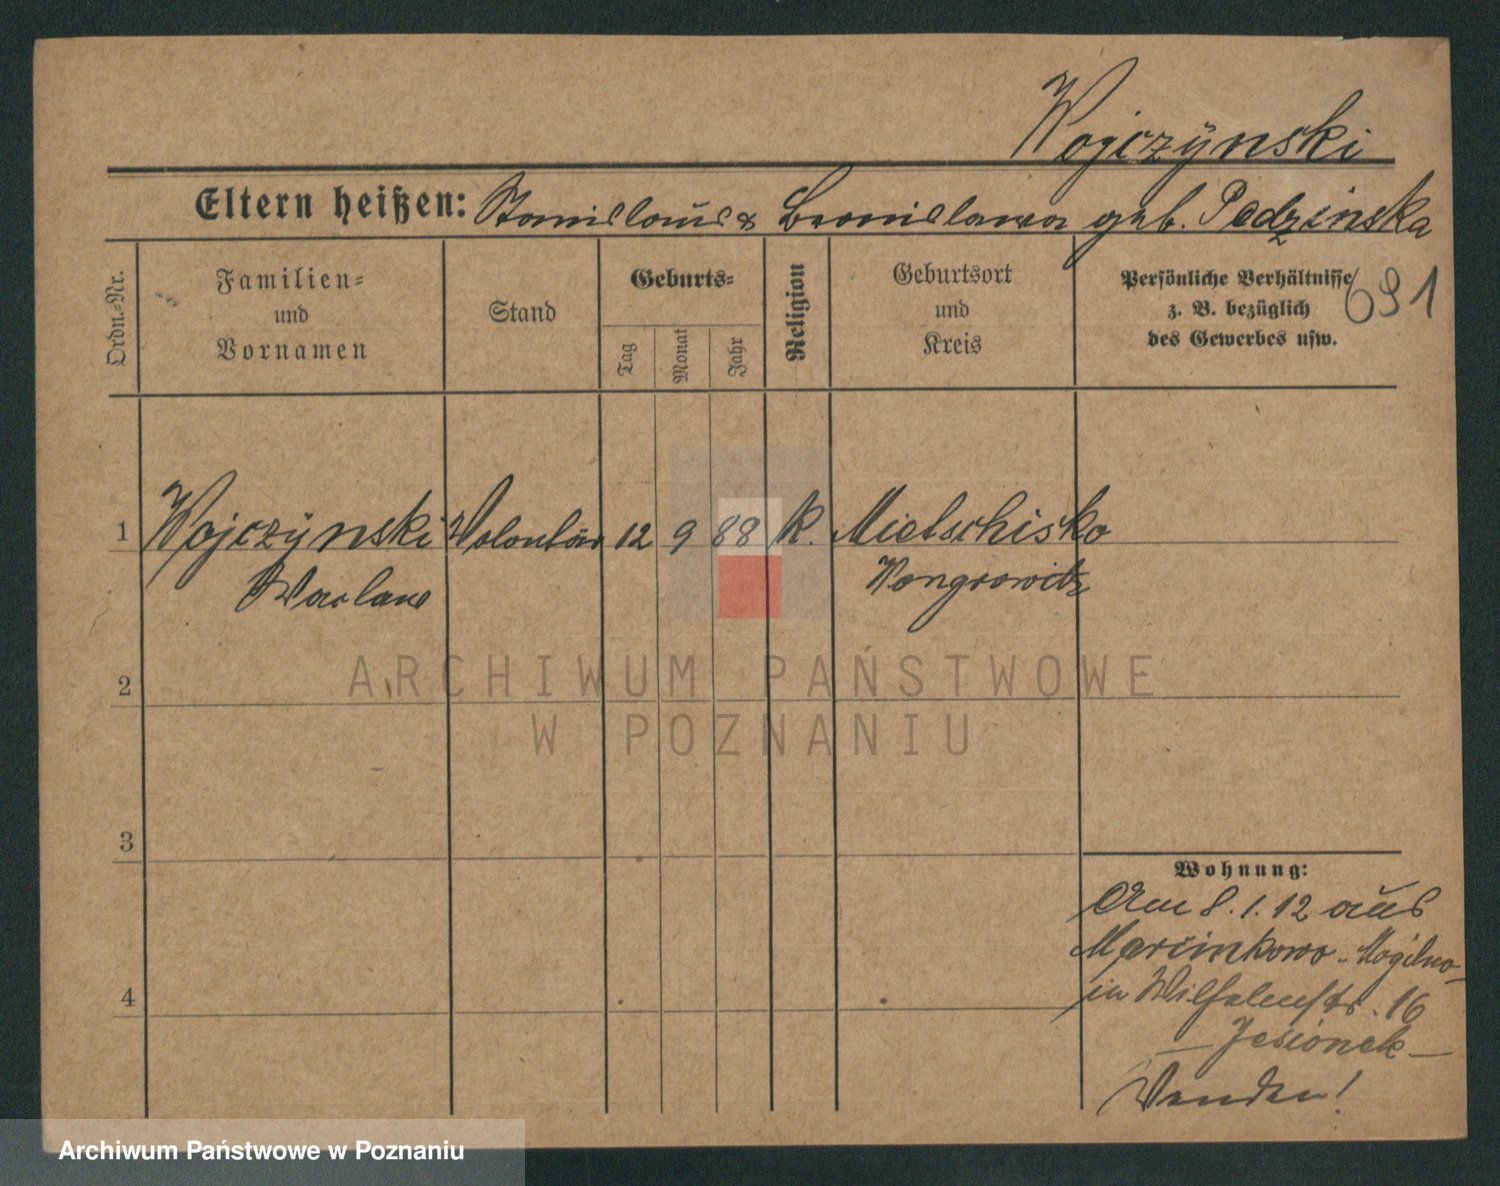 Wojczÿnski
Eltern heißen: Stanislaus & Bronislawa geb. Pedzinska
Ordn.-Nr.
Familien- und Vornamen
Stand
Geburts-
Tag
Monat
Jahr
Religion
Geburtsort und Kreis
Persönliche Verhältnisse
z. B. bezüglich
des Gewerbes usw.
691
1 Wojczÿnski Volontär 12 9 88 K. Mietschisko
Waclaw Wongrowitz
2
ARCHIWUM PAŃSTWOWE
W POZNANIU
3
Wohnung:
Am 8.1.12 aus
Marcinkowo-Mogilno
in Wilhelmstr. 16
4
— Jesionek —
Wenden!
Archiwum Państwowe w Poznaniu